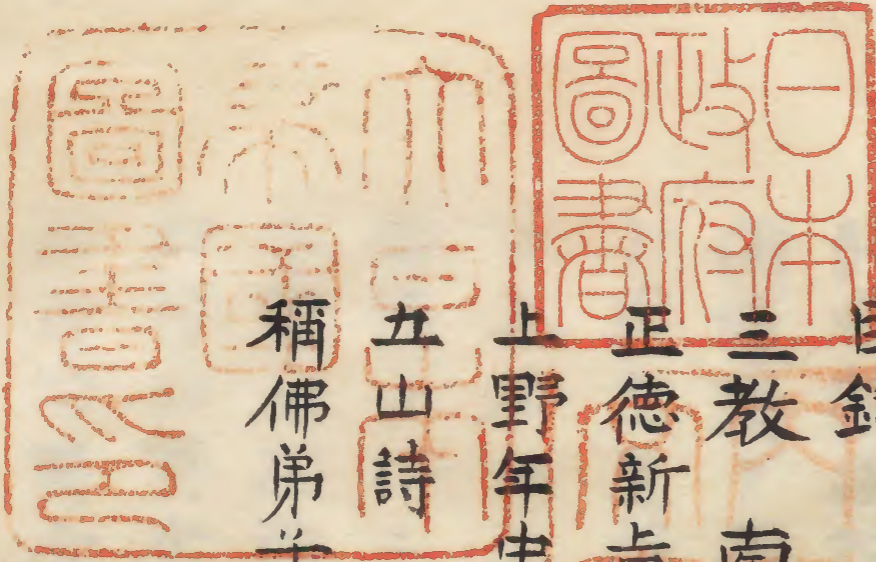 日本
政府
圖書
大日本
帝國
圖書之印
三教 南
正徳新
上野年中
五山詩
稱佛弟